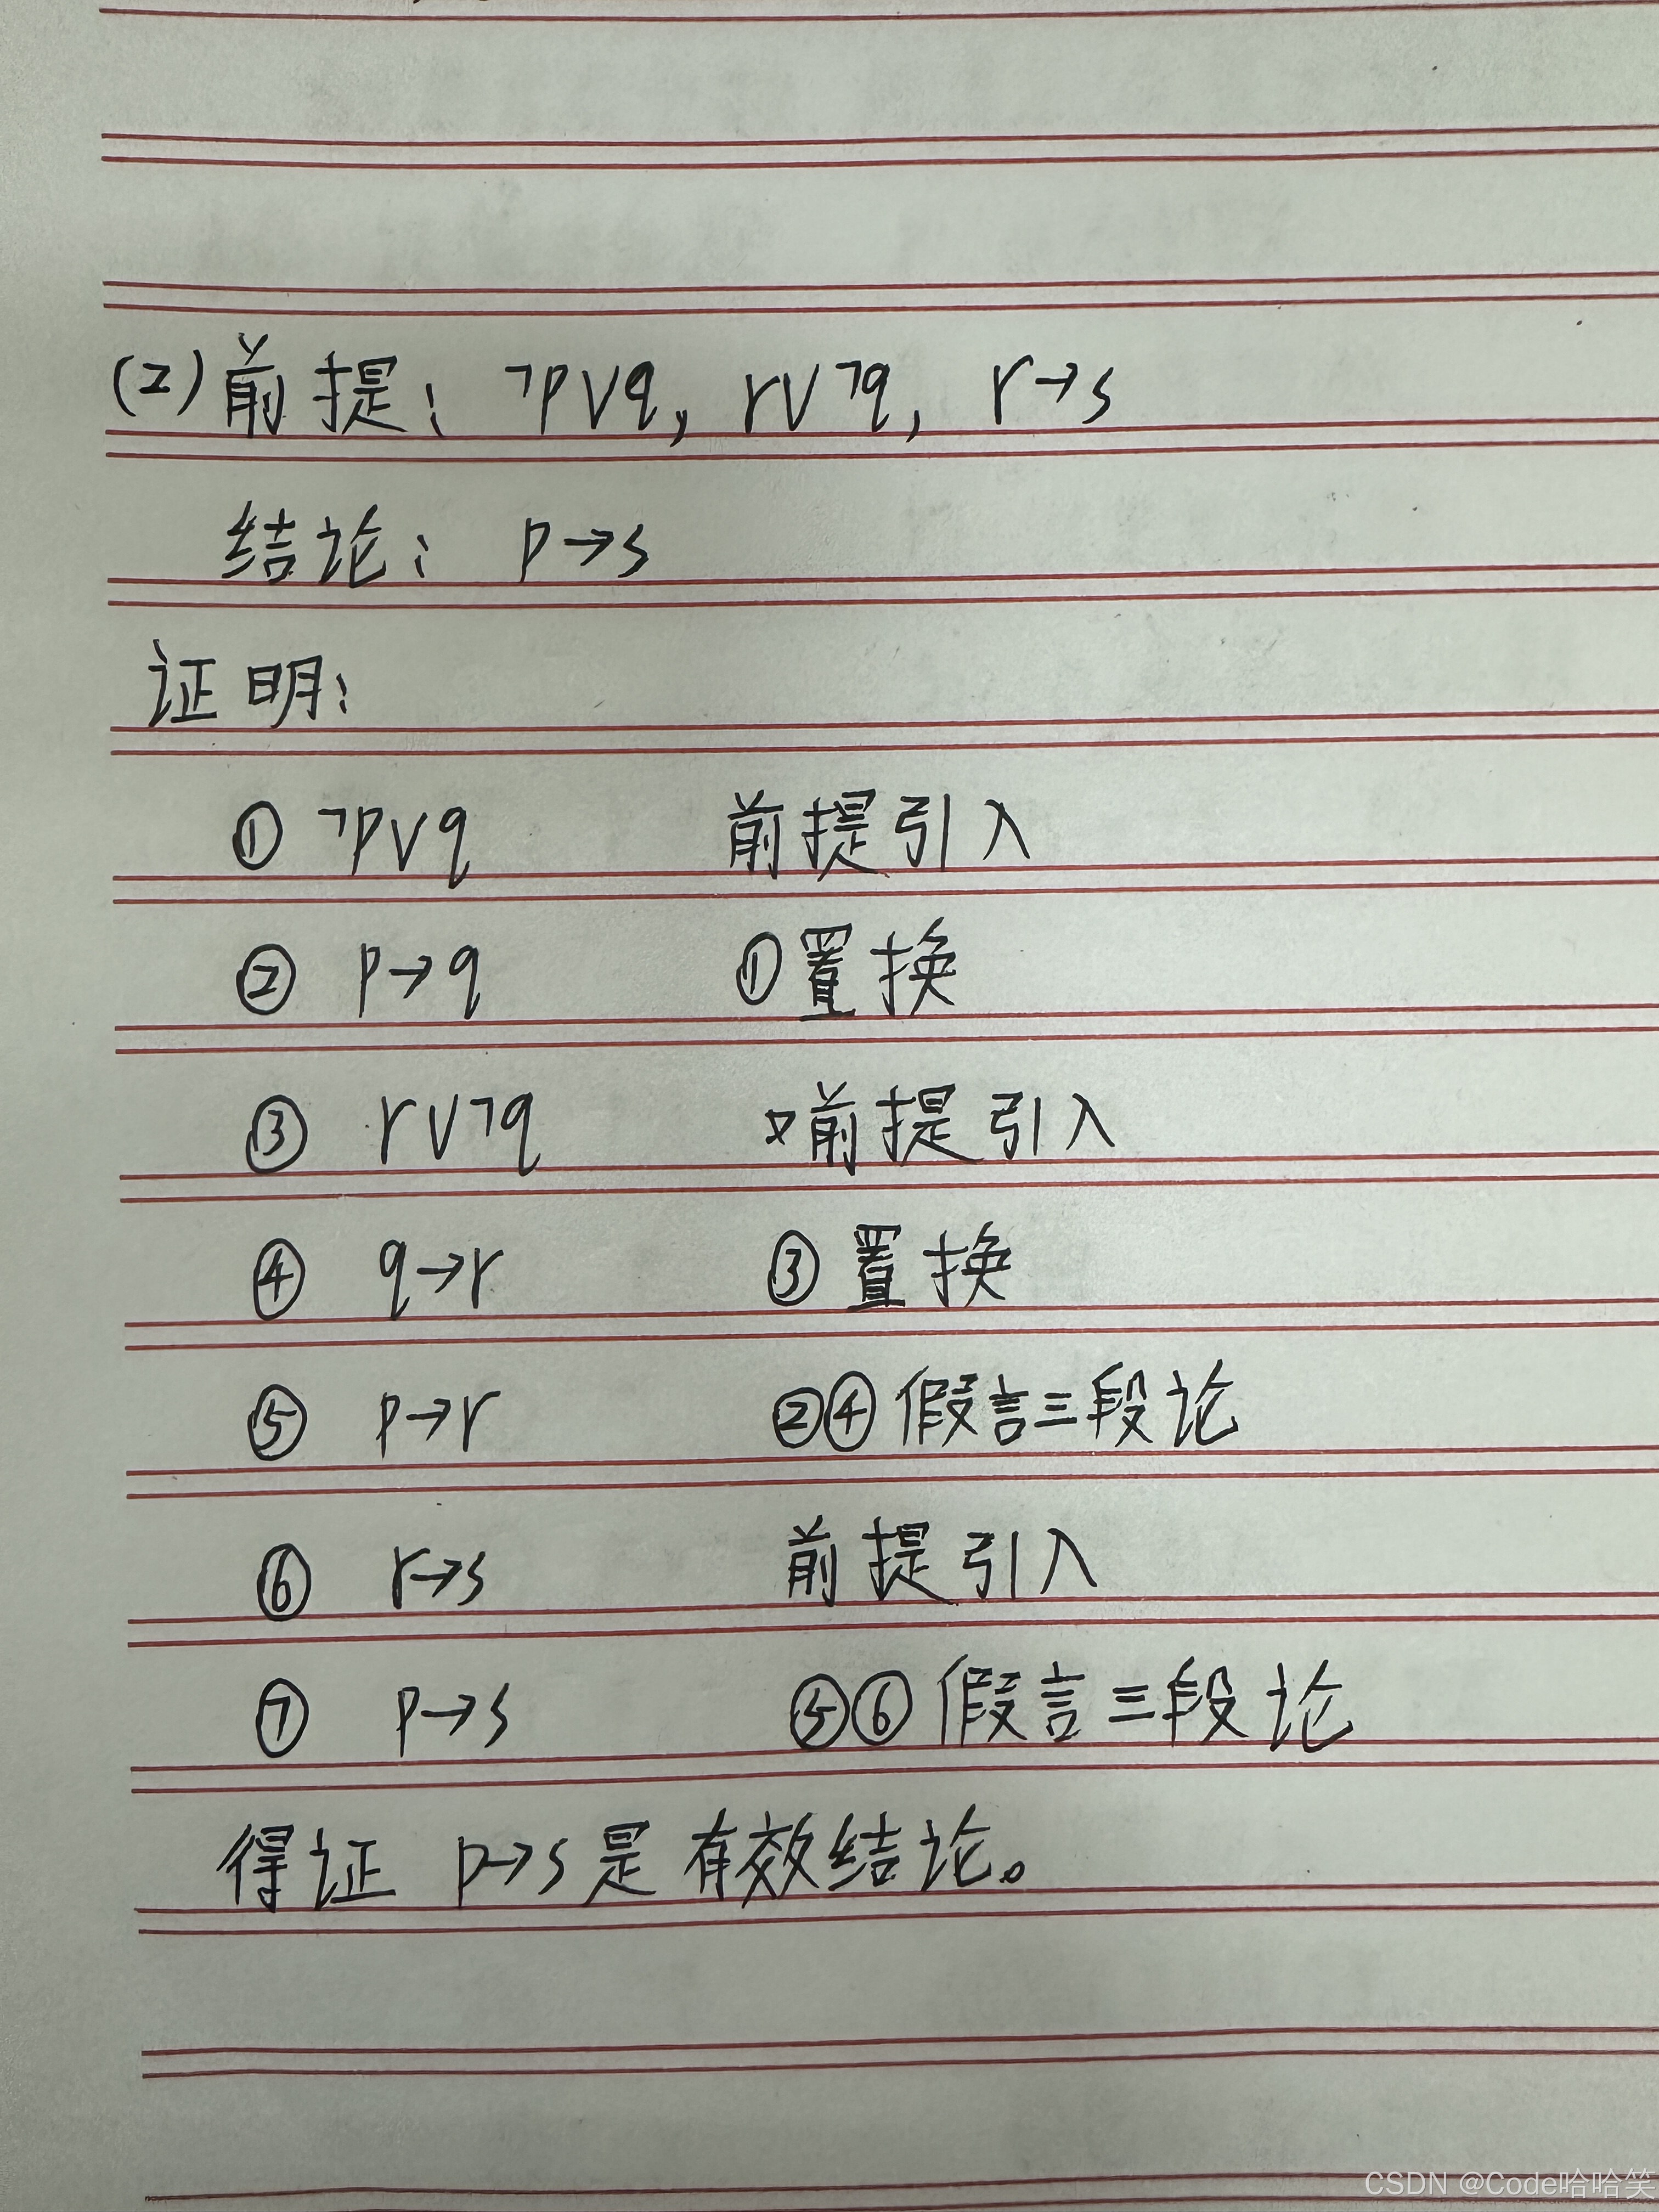 (2) 前提: ¬p∨q, r∨¬q, r→s
结论: p→s
证明:
① ¬p∨q 前提引入
② p→q ①置换
③ r∨¬q 前提引入
④ q→r ③置换
⑤ p→r ②④假言三段论
⑥ r→s 前提引入
⑦ p→s ⑤⑥假言三段论
得证 p→s是有效结论。
CSDN @Code哈哈笑